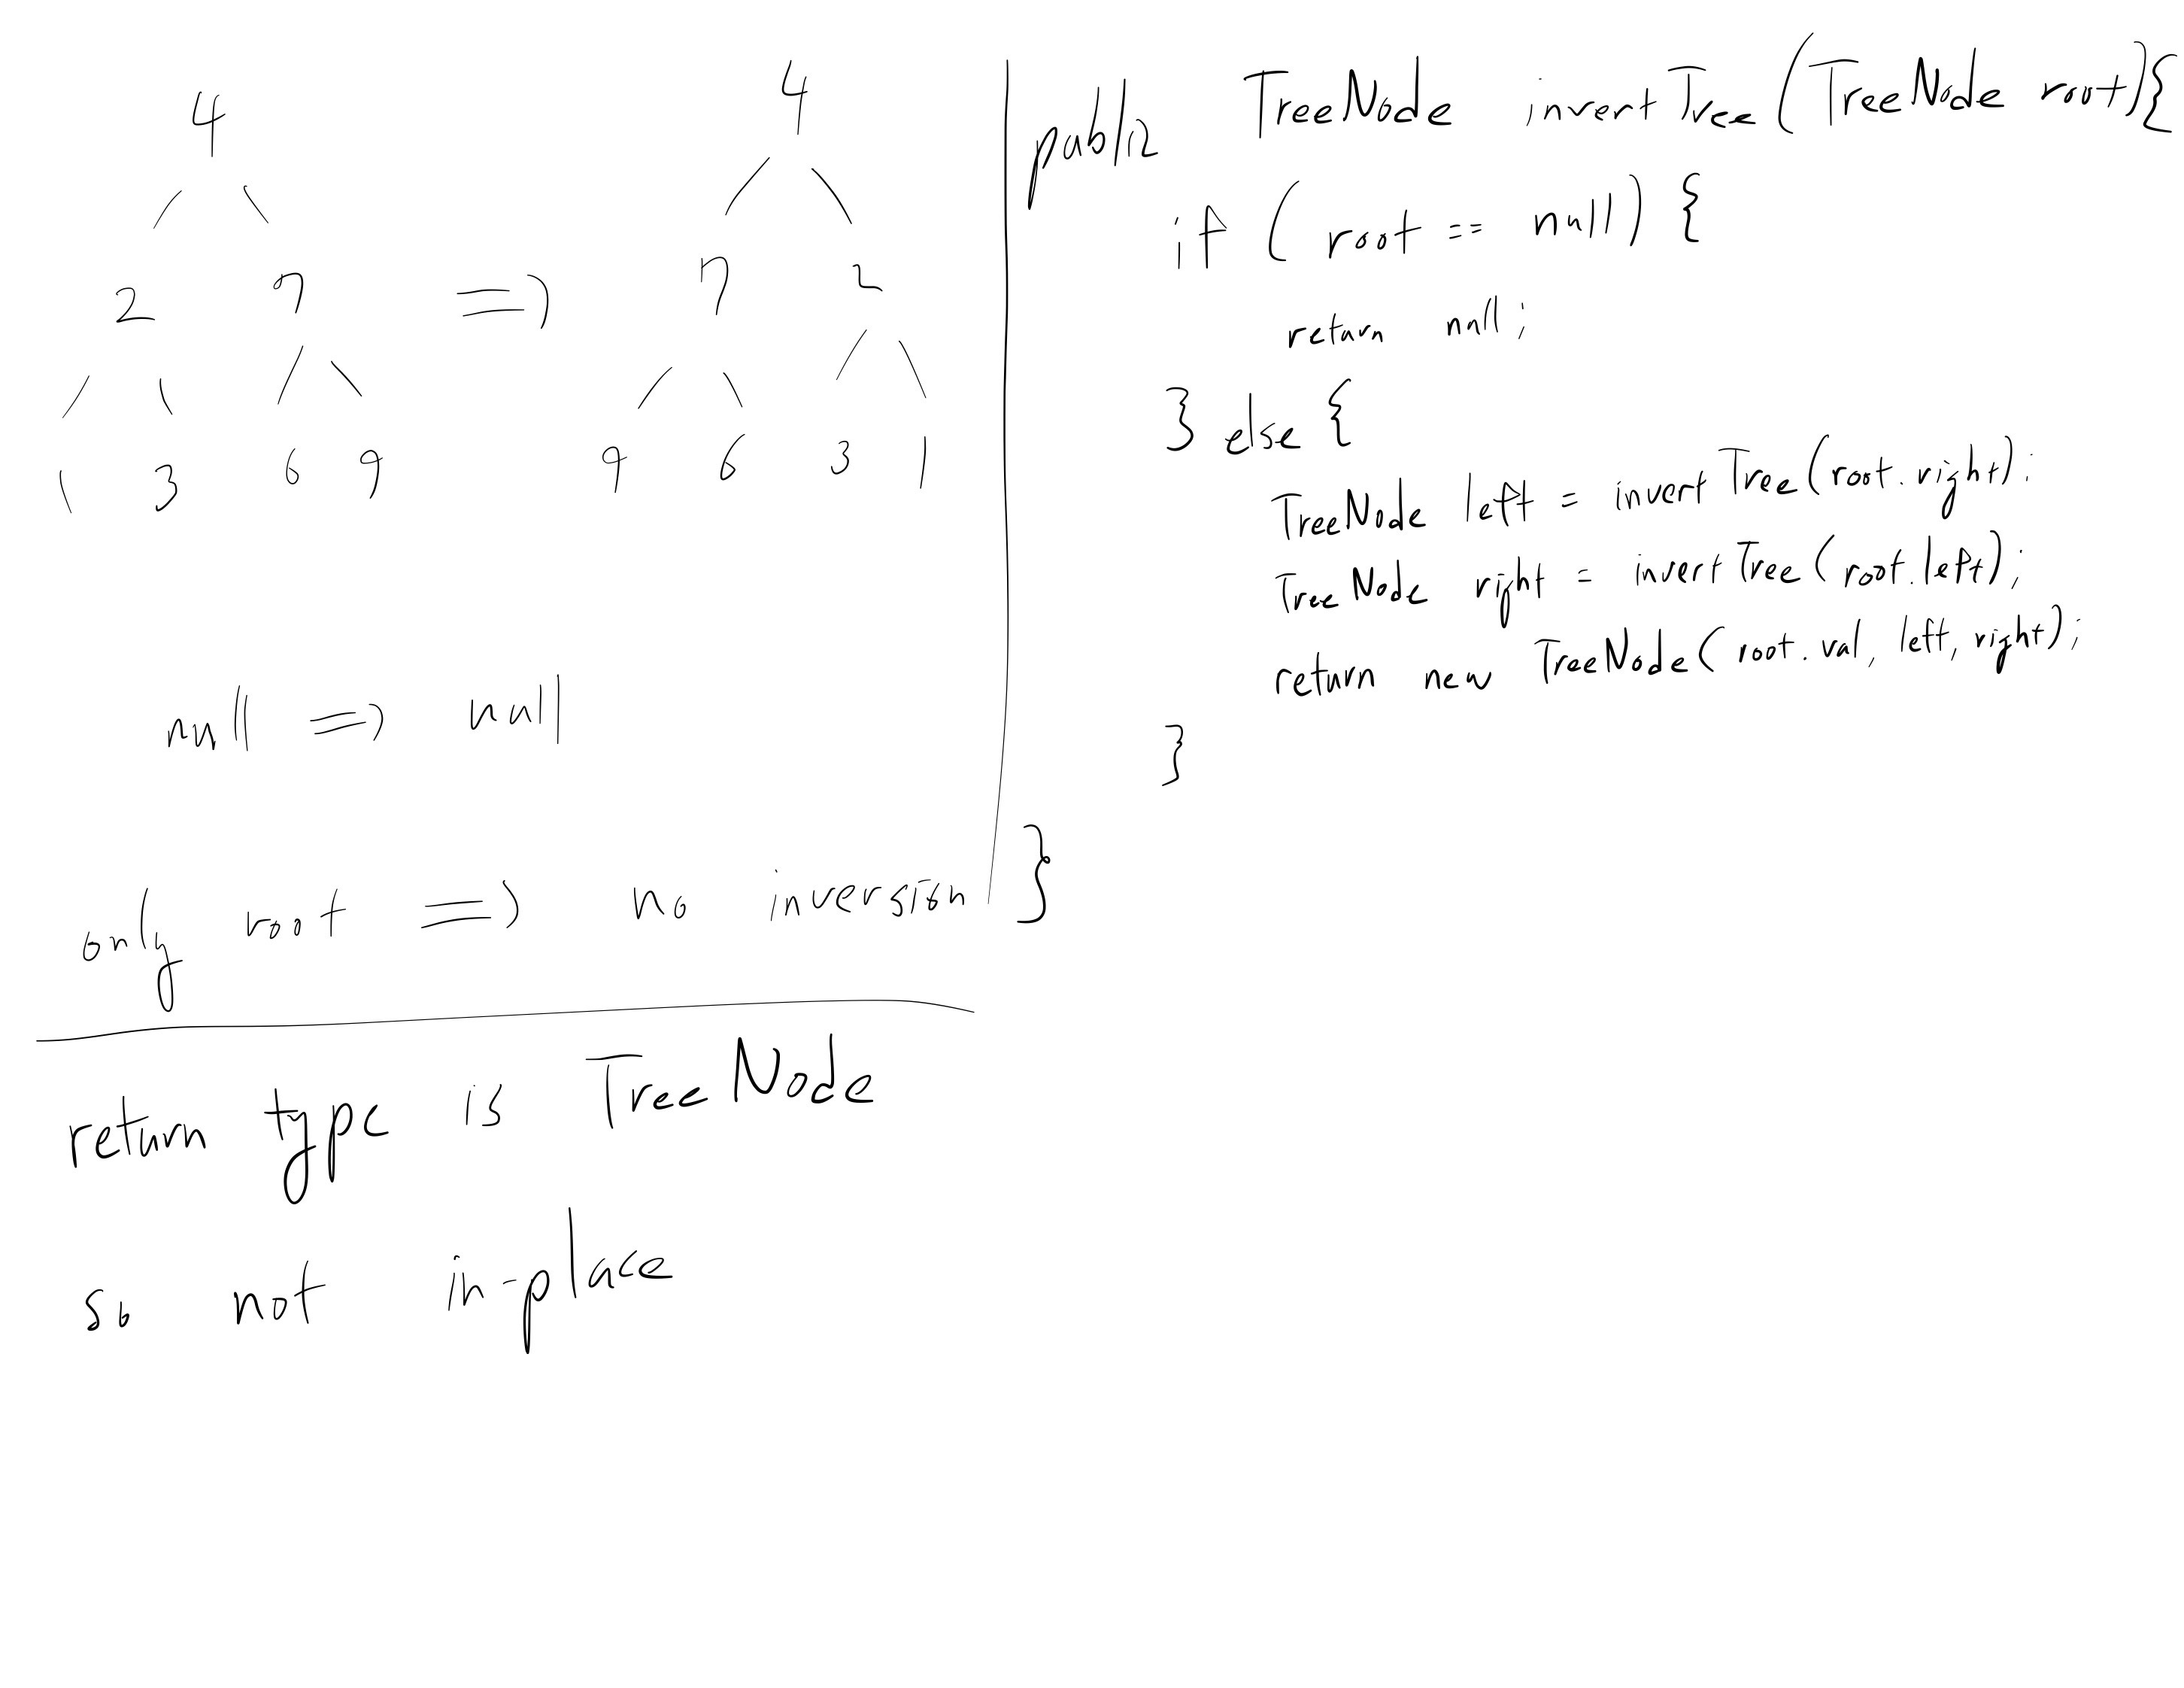 4
/ \
2 7
/ \ / \
1 3 6 9
=>
4
/ \
7 2
/ \ / \
9 6 3 1
null => null
only root => no inversion
return type is TreeNode
so not in-place
public TreeNode invertTree(TreeNode root){
if (root == null) {
return null;
} else {
TreeNode left = invertTree(root.right);
TreeNode right = invertTree(root.left);
return new TreeNode(root.val, left, right);
}
}